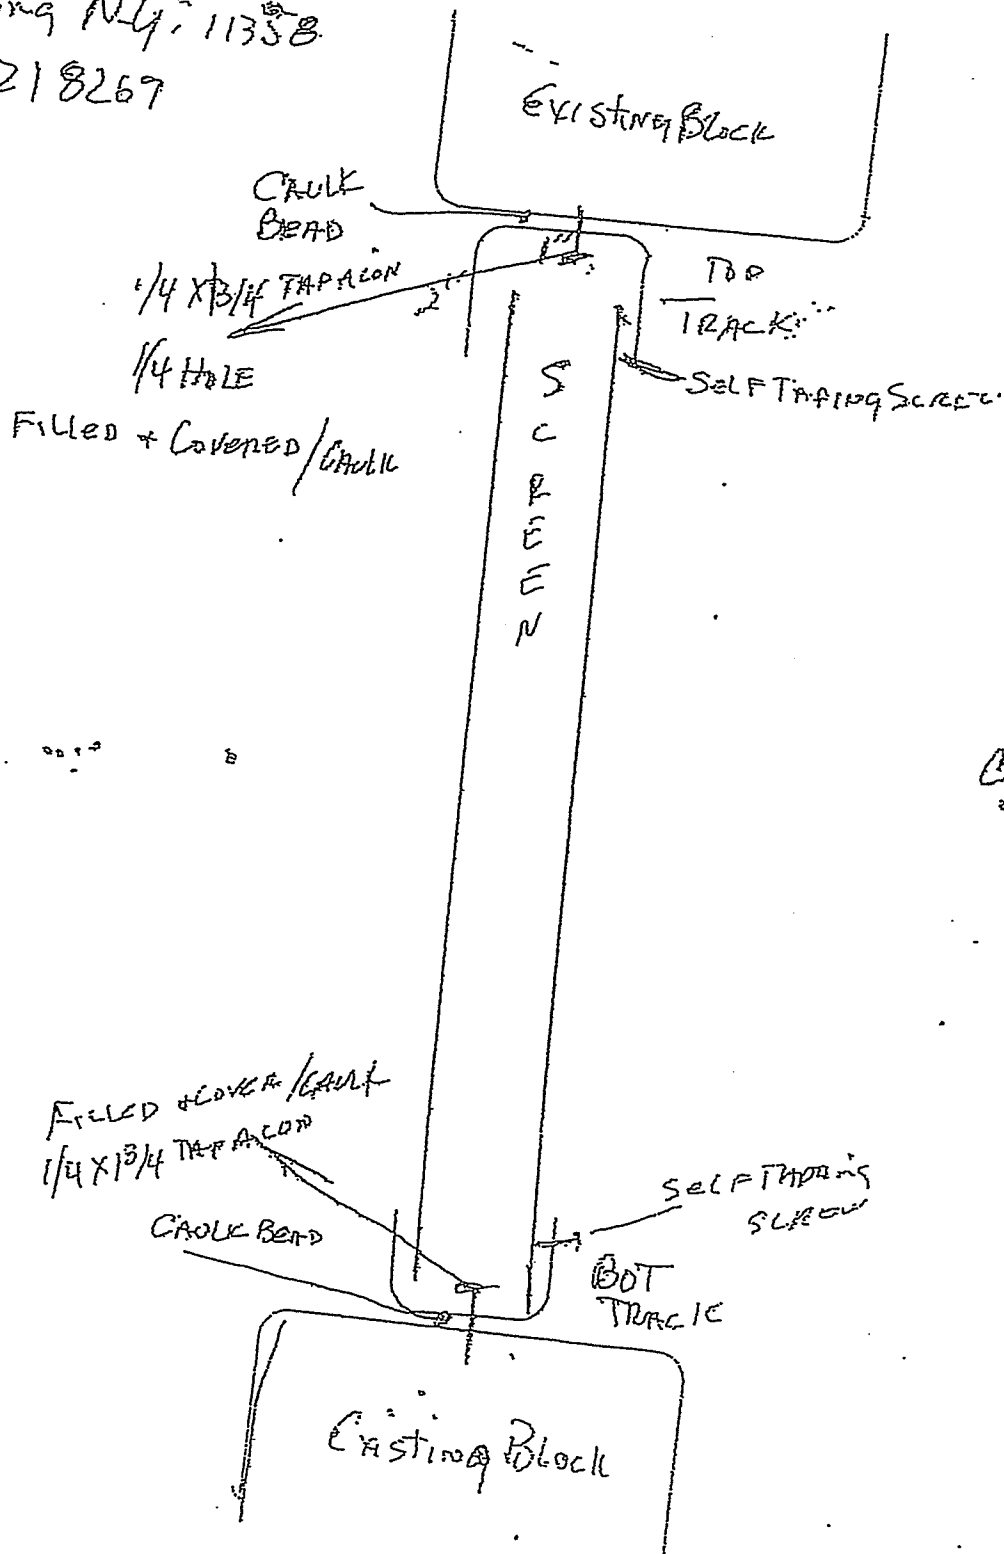 ng N.Y. 11358
218269
Existing Block
CAULK
BEAD
1/4 X 1 3/4 TAPACON
1/4 HOLE
Filled + Covered/CAULK
TOP
TRACK
SELF TAPING SCREW
SCREEN
FILLED + COVER/CAULK
1/4 X 1 3/4 TAPACON
CAULK BEAD
SELF TAPPING
SCREW
BOT
TRACK
Existing Block